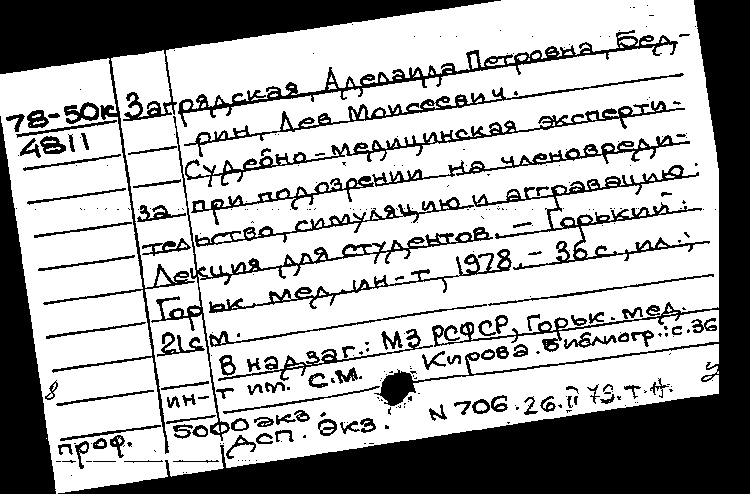 78-50к Загрядская, Аделаида Петровна, Бед-
4811 рин, Лев Моисеевич.
Судебно-медицинская эксперти-
за при подозрении на членовреди-
тельство, симуляцию и аггравацию:
Лекция для студентов. - Горький:
Горьк. мед. ин-т, 1978. - 36 с., ил.;
21 см.
В надзаг.: МЗ РСФСР, Горьк. мед.
ин-т им. С.М. Кирова. Библиогр.: с. 36
8
проф. 5000 экз.
ДСП. Экз. N 706. 26.II